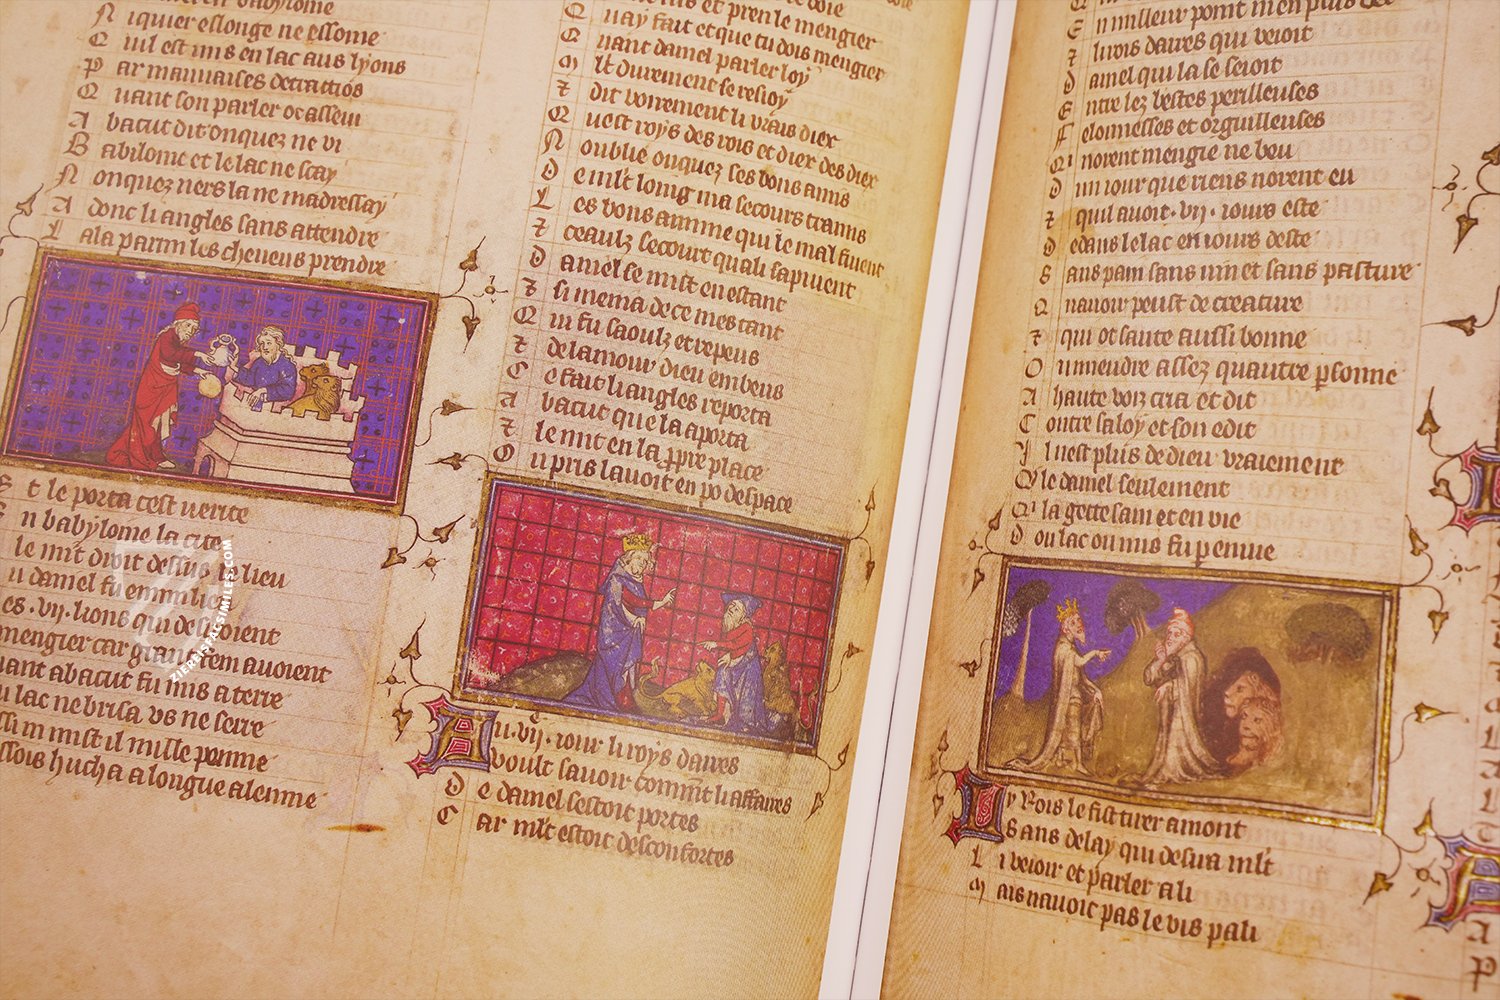 N iquier essonge ne essome
Q uil est mis en lac aus lyons
P ar mauuaises detractios
Q uant son parler ot asseui
A bacut dit onquez ne vi
B abilome et le lac ne scay
N onquez uers la ne madressay
A donc li angles sans attendre
L ala parmi les cheueus prendre
E t le porta cest uerite
E n babylome la cite
le mit droit dessus le lieu
u daniel fu emmi lieu
es .vij. lions qui de
mengier car grant fem auoient
uant abacut fu mis a terre
lac ne brisa vs ne serre
mist il mille pomme
ssois hucha a longue alemme
et pren le mengier
Q uay fait et que tu dois mengier
Q uant daniel parler loy
M lt durement se resioy
7 dit voirement li vrais diex
Q uest roys des rois et diex des diex
N oublie onquez ses bons amis
D e mlt loing ma secours tramis
L es bons aimme qui le mal fuient
7 ceaulz secourt quali sapuient
D aniel se mist en estant
7 si menia de ce mes tant
Q ui fu saoulz et repeus
7 de lamour dieu embeus
C e fait li angles reporta
A bacut que la aporta
7 le mit en la ppre place
O u pris lauoit en po despace
A u .vij. iour li roys daires
voult sauoir comment li affaires
D e daniel sestoit portes
C ar mlt estoit desconfortes
E n milleur point nien plus
7 li rois daires qui veioit
D aniel qui la se seioit
E ntre lez bestes perilleuses
F elonnesses et orguilleuses
Qi norent mengie ne beu
D un iour que riens norent eu
7 quil auoit .vij. iours este
D edans le lac en iours deste
S ans pain sans uin et sans pasture
Q nauoir peust de creature
7 qui ot sante aussi bonne
O u mendre assez quautre psonne
A haute voiz cria et dit
C ontre sa loy et son edit
Y l nest plus de dieu vraiement
Q le daniel seulement
Qi la gette sain et en vie
D ou lac ou mis fu p enuie
L y rois le fist tirer amont
S ans delay qui desira mlt
L i veoir et parler a li
M ais nauoit pas le vis pali
ZIEREISFACSIMILES.COM